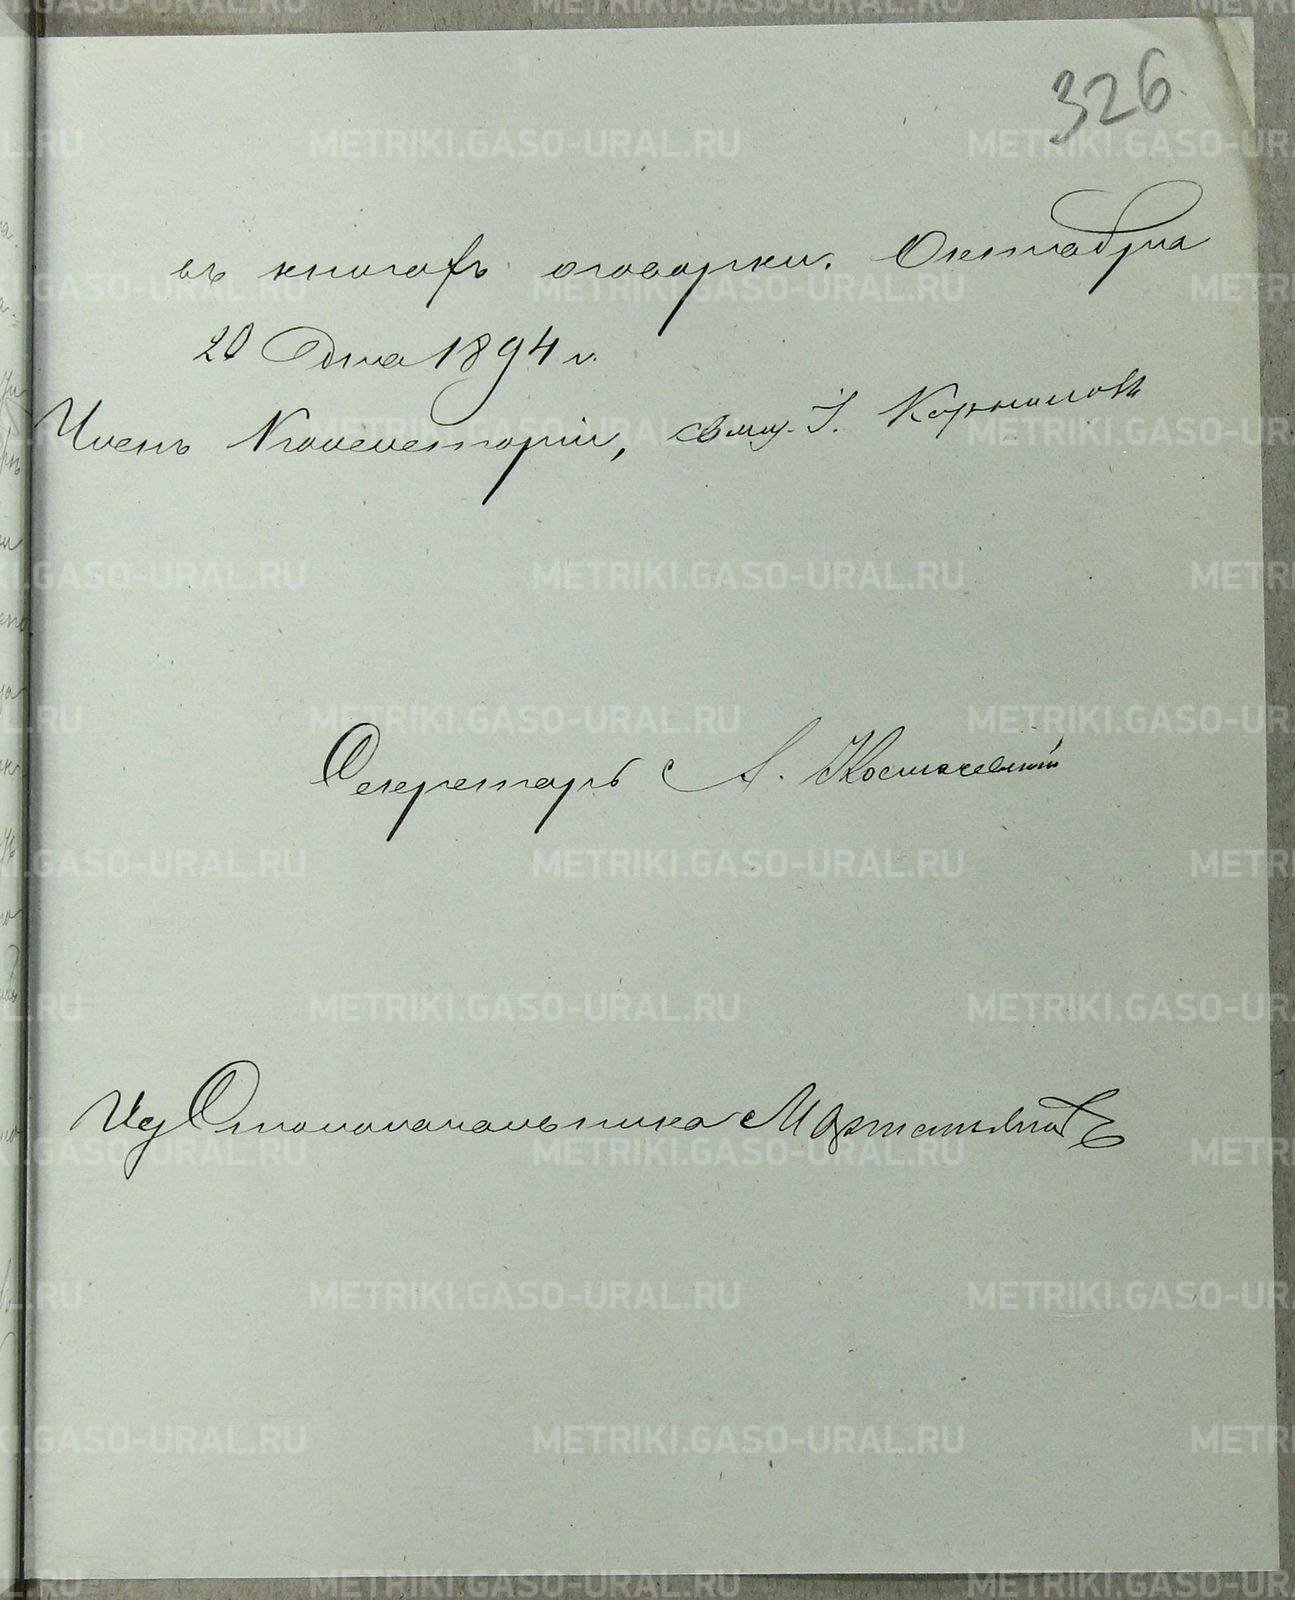 326
въ книгахъ оговорки. Октября
20 дня 1894 г.
Членъ Консисторіи, свящ. І. Корниловъ
Секретарь А.
Ид Столоначальника Мартыновъ
METRIKI.GASO-URAL.RU